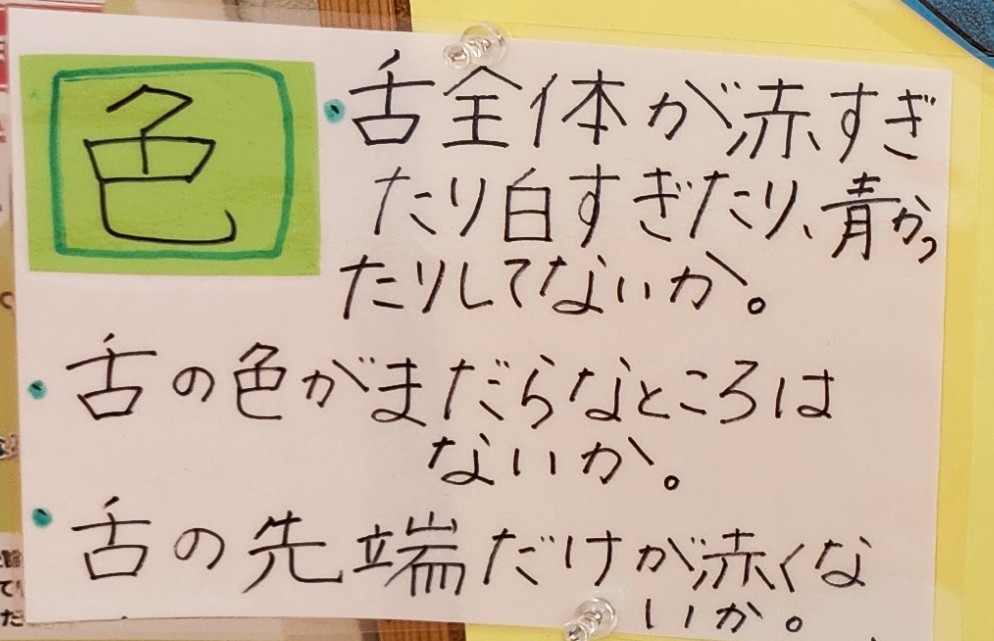 色
・舌全体が赤すぎ
たり白すぎたり、青かっ
たりしてないか。
・舌の色がまだらなところは
ないか。
・舌の先端だけが赤くな
いか。